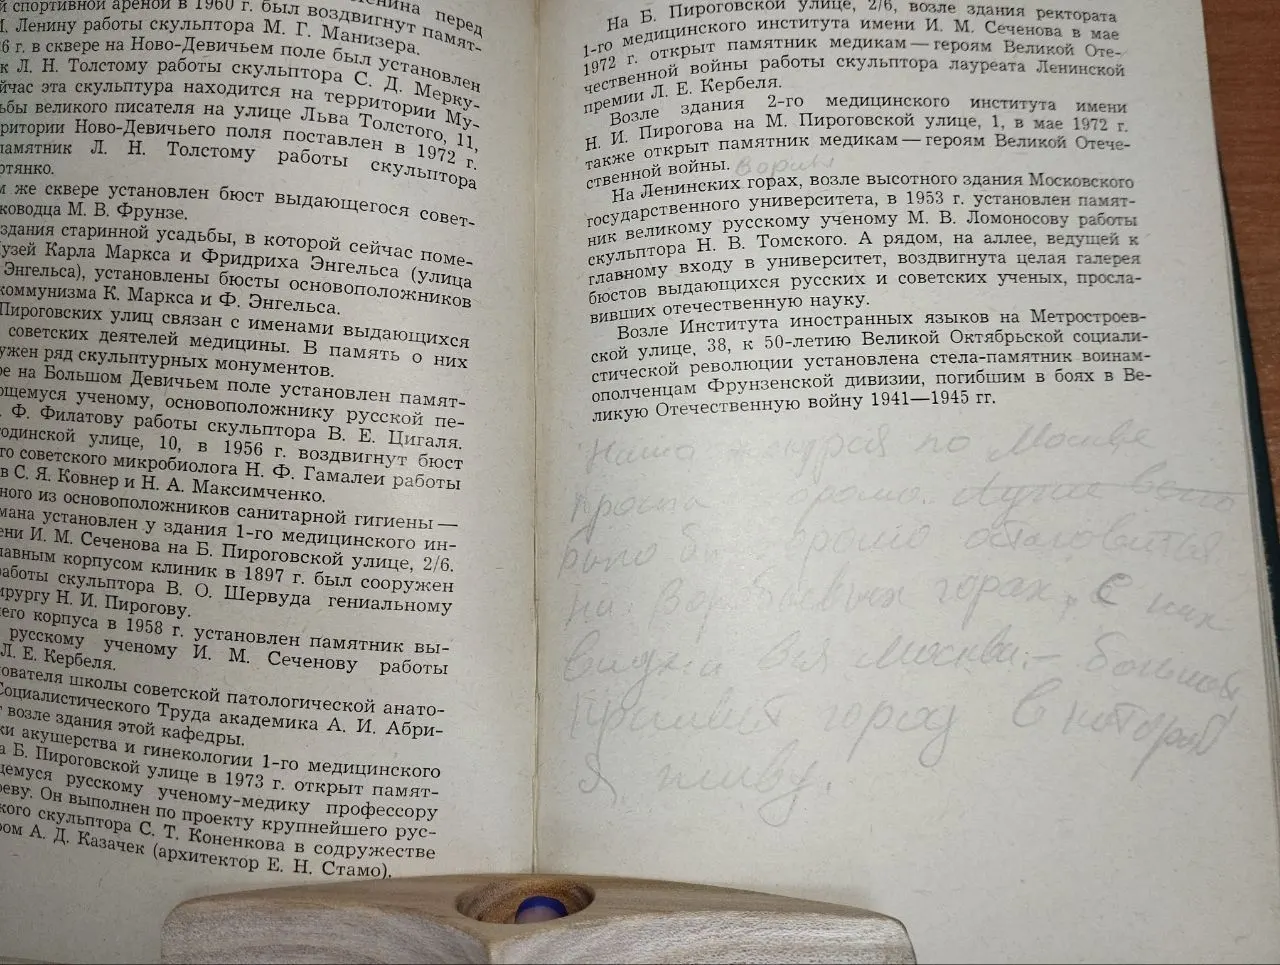 й спортивной ареной в 1960 г. был воздвигнут памят-
Ленину работы скульптора М. Г. Манизера.
6 г. в сквере на Ново-Девичьем поле был установлен
к Л. Н. Толстому работы скульптора С. Д. Мерку-
йчас эта скульптура находится на территории Му-
ьбы великого писателя на улице Льва Толстого, 11,
ритории Ново-Девичьего поля поставлен в 1972 г.
памятник Л. Н. Толстому работы скульптора
ртянко.
м же сквере установлен бюст выдающегося совет-
ководца М. В. Фрунзе.
здания старинной усадьбы, в которой сейчас поме-
узей Карла Маркса и Фридриха Энгельса (улица
Энгельса), установлены бюсты основоположников
коммунизма К. Маркса и Ф. Энгельса.
Пироговских улиц связан с именами выдающихся
советских деятелей медицины. В память о них
ужен ряд скульптурных монументов.
ре на Большом Девичьем поле установлен памят-
ющемуся ученому, основоположнику русской пе-
Ф. Филатову работы скульптора В. Е. Цигаля.
годинской улице, 10, в 1956 г. воздвигнут бюст
го советского микробиолога Н. Ф. Гамалеи работы
в С. Я. Ковнер и Н. А. Максимченко.
ного из основоположников санитарной гигиены —
мана установлен у здания 1-го медицинского ин-
ени И. М. Сеченова на Б. Пироговской улице, 2/6.
лавным корпусом клиник в 1897 г. был сооружен
работы скульптора В. О. Шервуда гениальному
ирургу Н. И. Пирогову.
его корпуса в 1958 г. установлен памятник вы-
русскому ученому И. М. Сеченову работы
Л. Е. Кербеля.
ователя школы советской патологической анато-
Социалистического Труда академика А. И. Абри-
т возле здания этой кафедры.
ки акушерства и гинекологии 1-го медицинского
а Б. Пироговской улице в 1973 г. открыт памят-
щемуся русскому ученому-медику профессору
реву. Он выполнен по проекту крупнейшего рус-
кого скульптора С. Т. Коненкова в содружестве
ром А. Д. Казачек (архитектор Е. Н. Стамо).
На Б. Пироговской улице, 2/6, возле здания ректората
1-го медицинского института имени И. М. Сеченова в мае
1972 г. открыт памятник медикам — героям Великой Оте-
чественной войны работы скульптора лауреата Ленинской
премии Л. Е. Кербеля.
Возле здания 2-го медицинского института имени
Н. И. Пирогова на М. Пироговской улице, 1, в мае 1972 г.
также открыт памятник медикам — героям Великой Отече-
ственной войны.
На Ленинских горах, возле высотного здания Московского
государственного университета, в 1953 г. установлен памят-
ник великому русскому ученому М. В. Ломоносову работы
скульптора Н. В. Томского. А рядом, на аллее, ведущей к
главному входу в университет, воздвигнута целая галерея
бюстов выдающихся русских и советских ученых, просла-
вивших отечественную науку.
Возле Института иностранных языков на Метростроев-
ской улице, 38, к 50-летию Великой Октябрьской социали-
стической революции установлена стела-памятник воинам-
ополченцам Фрунзенской дивизии, погибшим в боях в Ве-
ликую Отечественную войну 1941—1945 гг.
Наша по Москве
было бы остановиться
на Воробьевых горах, с них
видна вся Москва – большой
город в которой
я живу.